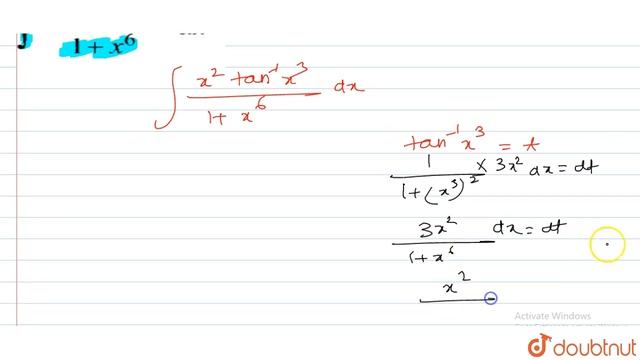 1 + x⁶
∫ x² tan⁻¹ x³ / 1 + x⁶ dx
tan⁻¹ x³ = t
1 / 1 + (x³)² × 3x² dx = dt
3x² / 1 + x⁶ dx = dt
x²
Activate Windows
doubtnut